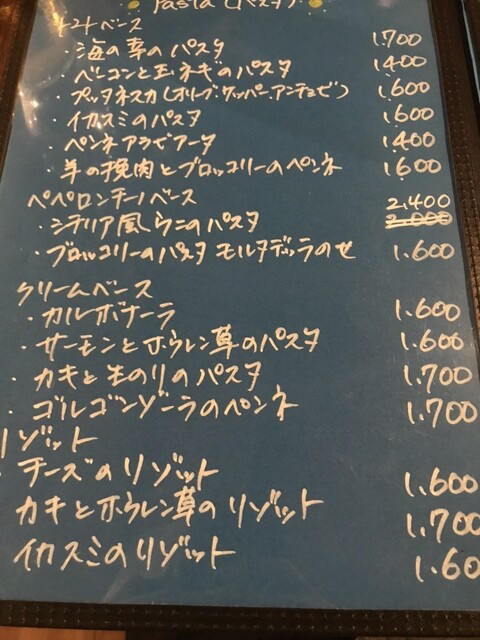 Pasta (パスタ)
トマトベース
・海の幸のパスタ 1.700
・ベーコンと玉ネギのパスタ 1.400
・プッタネスカ(オリーブ・ケッパー.アンチョビ) 1.600
・イカスミのパスタ 1.600
・ペンネアラビアータ 1.400
・羊の挽肉とブロッコリーのペンネ 1.600
ペペロンチーノベース 2.400
・シチリア風ウニのパスタ 2.000
・ブロッコリーのパスタ モルタデッラのせ 1.600
クリームベース
・カルボナーラ 1.600
・サーモンとホウレン草のパスタ 1.600
・カキと生のりのパスタ 1.700
・ゴルゴンゾーラのペンネ 1.700
リゾット
・チーズのリゾット 1.600
カキとホウレン草のリゾット 1.700
イカスミのリゾット 1.60